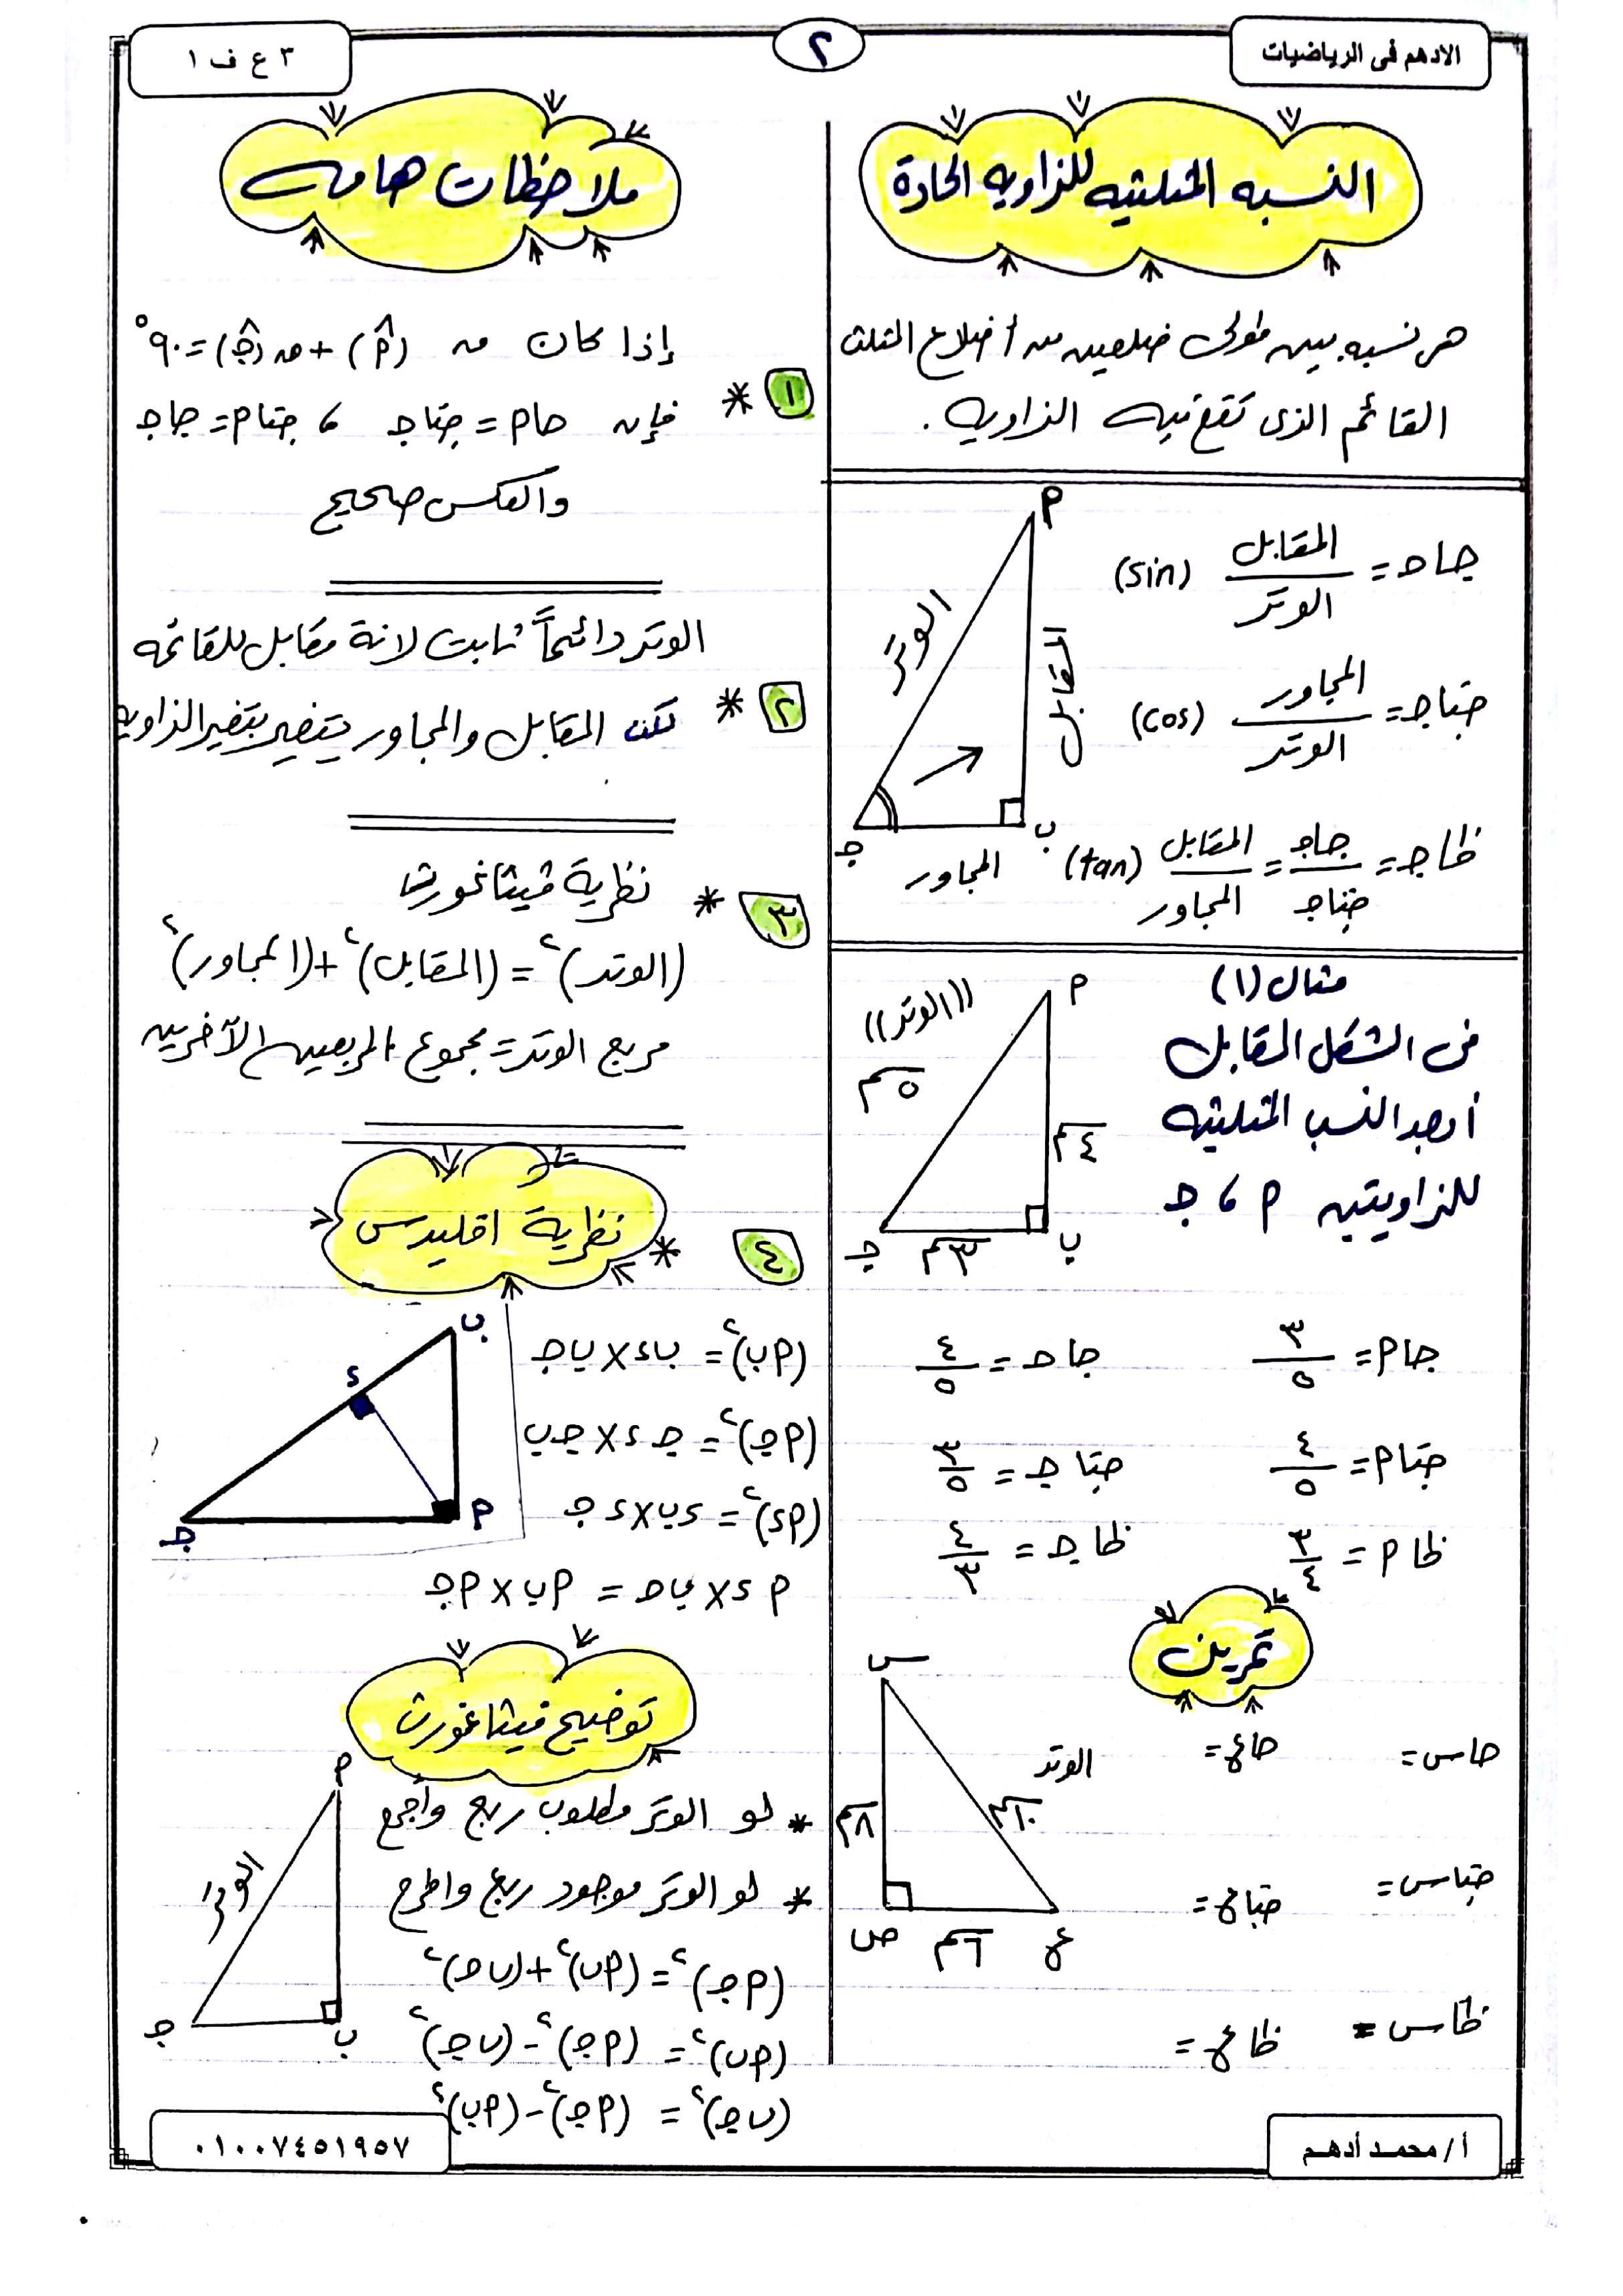 الادهم فى الرياضيات
٢
٣ ع ف ١
النسبه المثلثيه للزاويه الحادة
هى نسبه بين طولى ضلعين من أضلاع المثلث
القائم الذى تقع فيه الزاويه .
جا حـ = المقابل / الوتر (sin)
جتا جـ = المجاور / الوتر (cos)
ظا جـ = جا جـ / جتا جـ = المقابل / المجاور (tan)
أ
الوتر
المقابل
جـ
ب
المجاور
مثال (١)
فى الشكل المقابل
أوجد النسب المثلثيه
للزاويتين أ ، جـ
أ
((الوتر))
٥سم
٤سم
جـ
٣سم
ب
جا أ = ٣/٥
جا حـ = ٤/٥
جتا أ = ٤/٥
جتا جـ = ٣/٥
ظا أ = ٣/٤
ظا جـ = ٤/٣
تمرين
س
الوتر
٨سم
١٠سم
ص
٦سم
ع
جا س =
جا ع =
جتا س =
جتا ع =
ظا س =
ظا ع =
ملاحظات هامه
١ * إذا كان ق (أ̂) + ق (جـ̂) = ٩٠°
فإن جا أ = جتا جـ ، جتا أ = جا جـ
والعكس صحيح
الوتر دائماً ثابت لانة مقابل للقائمه
٢ * لكن المقابل والمجاور يتغير بتغير الزاويه
٣ * نظرية فيثاغورث
(الوتر)٢ = (المقابل)٢ + (المجاور)٢
مربع الوتر = مجموع المربعين الآخرين
٤ * نظرية اقليدس
ب
ء
أ
جـ
(أب)٢ = ب ء × ب جـ
(أ جـ)٢ = جـ ء × جـ ب
(أ ء)٢ = ء ب × ء جـ
أ ء × ب حـ = أ ب × أ جـ
توضيح فيثاغورث
* لو الوتر مطلوب ربع وأجمع
* لو الوتر موجود ربع واطرح
أ
الوتر
جـ
ب
(أ جـ)٢ = (أ ب)٢ + (ب جـ)٢
(أ ب)٢ = (أ جـ)٢ - (ب جـ)٢
(ب جـ)٢ = (أ جـ)٢ - (أ ب)٢
أ / محمد أدهم
٠١٠٠٧٤٥١٩٥٧